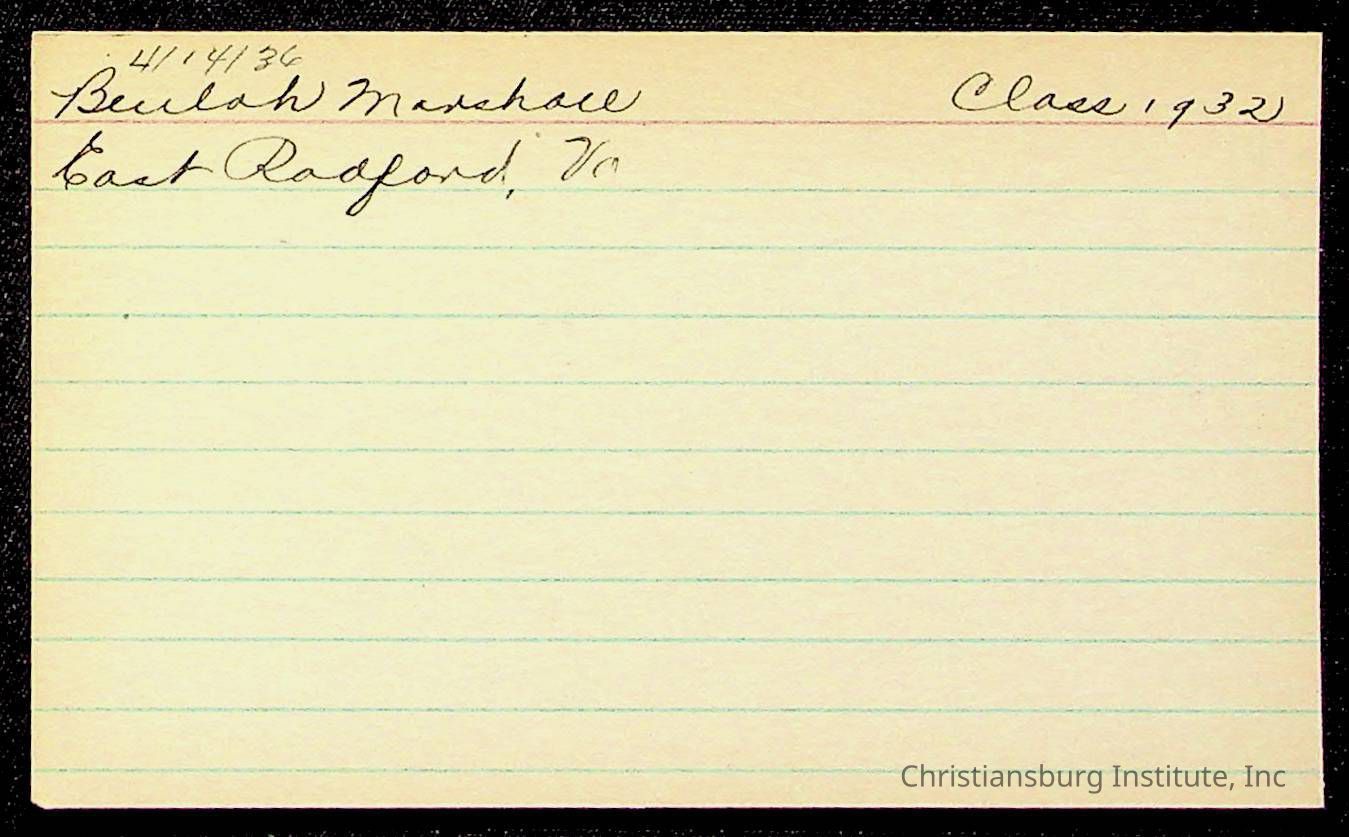 4/14/36
Beulah Marshall Class 1932
East Radford, Va
Christiansburg Institute, Inc